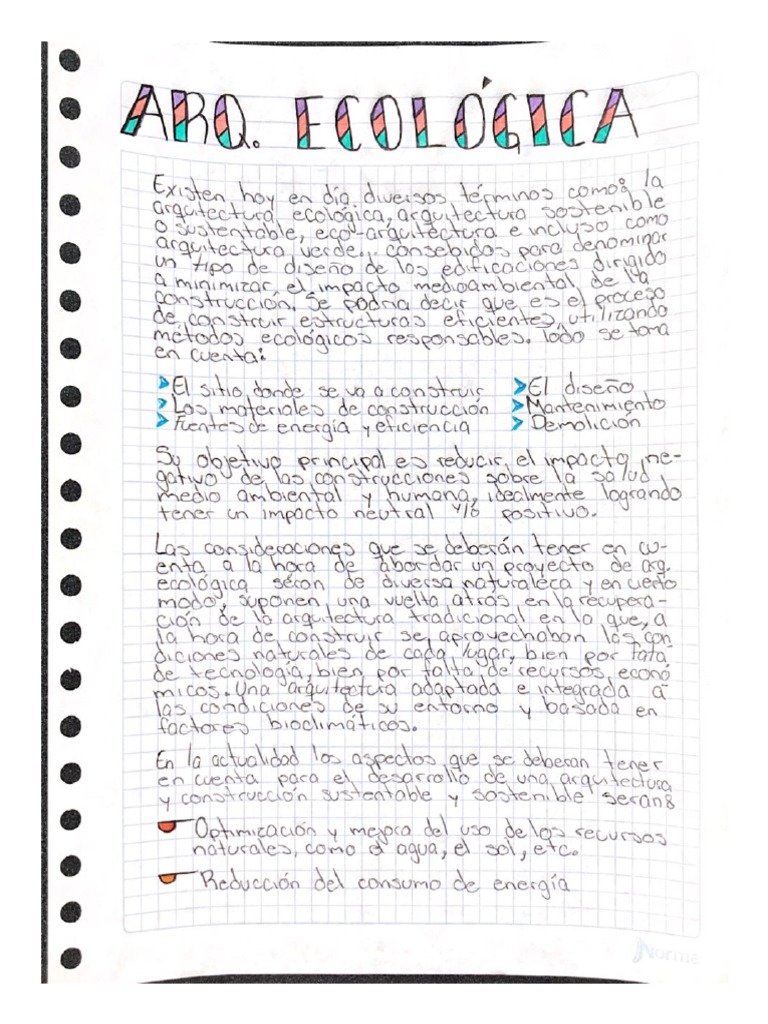 ARQ. ECOLÓGICA
Existen hoy en día diversos términos como: la
arquitectura ecológica, arquitectura sostenible
o sustentable, eco-arquitectura e incluso como
arquitectura verde, consebidos para denominar
un tipo de diseño de las edificaciones dirigido
a minimizar el impacto medioambiental de la
construcción. Se podria decir que es el proceso
de construir estructuras eficientes, utilizando
métodos ecológicos responsables. Todo se toma
en cuenta:
El sitio donde se va a construir
Los materiales de construcción
Fuentes de energía y eficiencia
El diseño
Mantenimiento
Demolición
Su objetivo principal es reducir el impacto ne-
gativo de las construcciones sobre la salud
medio ambiental y humana, idealmente logrando
tener un impacto neutral y/o positivo.
Las consideraciones que se deberán tener en cu-
enta a la hora de abordar un proyecto de arq.
ecológica serán de diversa naturaleca y en cierto
modo, suponen una vuelta atrás en la recupera-
ción de la arquitectura tradicional en la que, a
la hora de construir se aprovechaban las con
diciones naturales de cada lugar, bien por falta
de tecnología, bien por falta de recursos econó
micos. Una arquitectura adaptada e integrada a
las condiciones de su entorno y basada en
factores bioclimáticos.
En la actualidad los aspectos que se deberan tener
en cuenta para el desarrollo de una arquitectura
y construcción sustentable y sostenible seran:
Optimización y mejora del uso de los recursos
naturales, como el agua, el sol, etc.
Reducción del consumo de energía
Norma